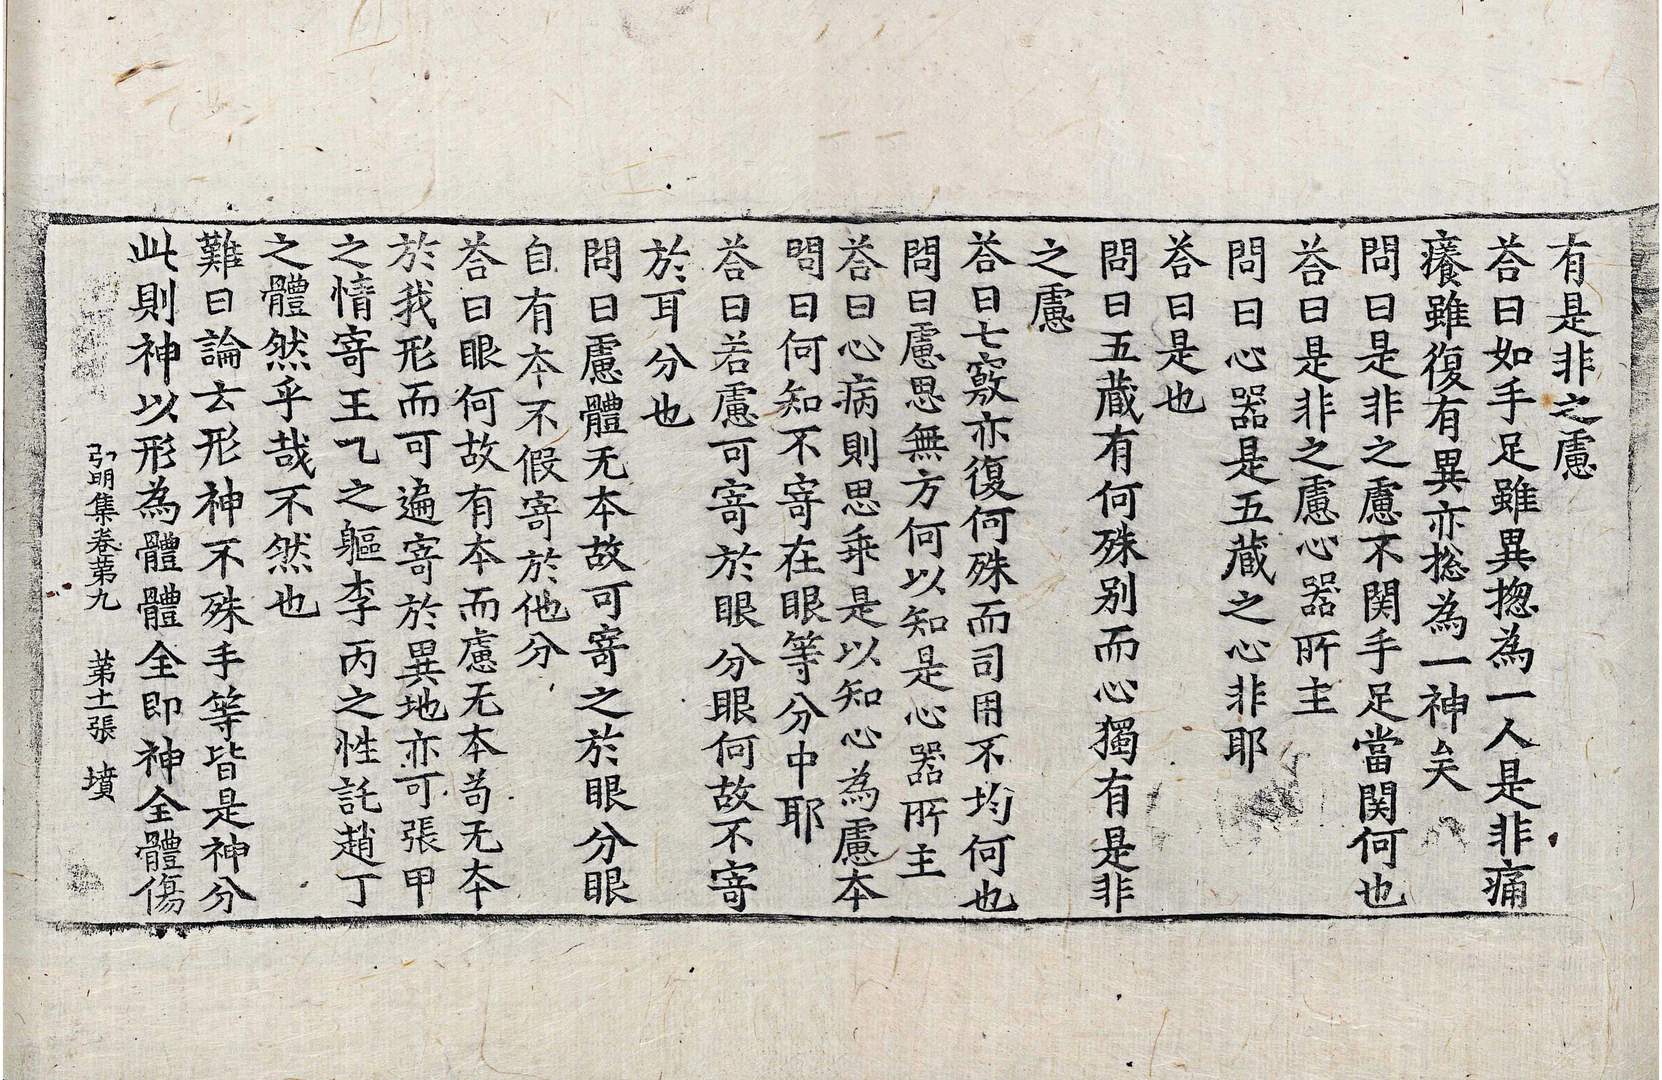 有是非之慮
荅曰如手足雖異揔為一人是非痛
癢雖復有異亦揔為一神矣
問曰是非之慮不関手足當関何也
荅曰是非之慮心器所主
問曰心器是五蔵之心非耶
荅曰是也
問曰五蔵有何殊别而心獨有是非
之慮
荅曰七竅亦復何殊而司用不均何也
問曰慮思無方何以知是心器所主
荅曰心病則思乖是以知心為慮本
問曰何知不寄在眼等分中耶
荅曰若慮可寄於眼分眼何故不寄
於耳分也
問曰慮體无本故可寄之於眼分眼
自有本不假寄於他分
荅曰眼何故有本而慮无本苟无本
於我形而可遍寄於異地亦可張甲
之情寄王乙之軀李丙之性託趙丁
之體然乎哉不然也
難曰論云形神不殊手等皆是神分
此則神以形為體體全即神全體傷
弘明集卷苐九 苐十一張 墳